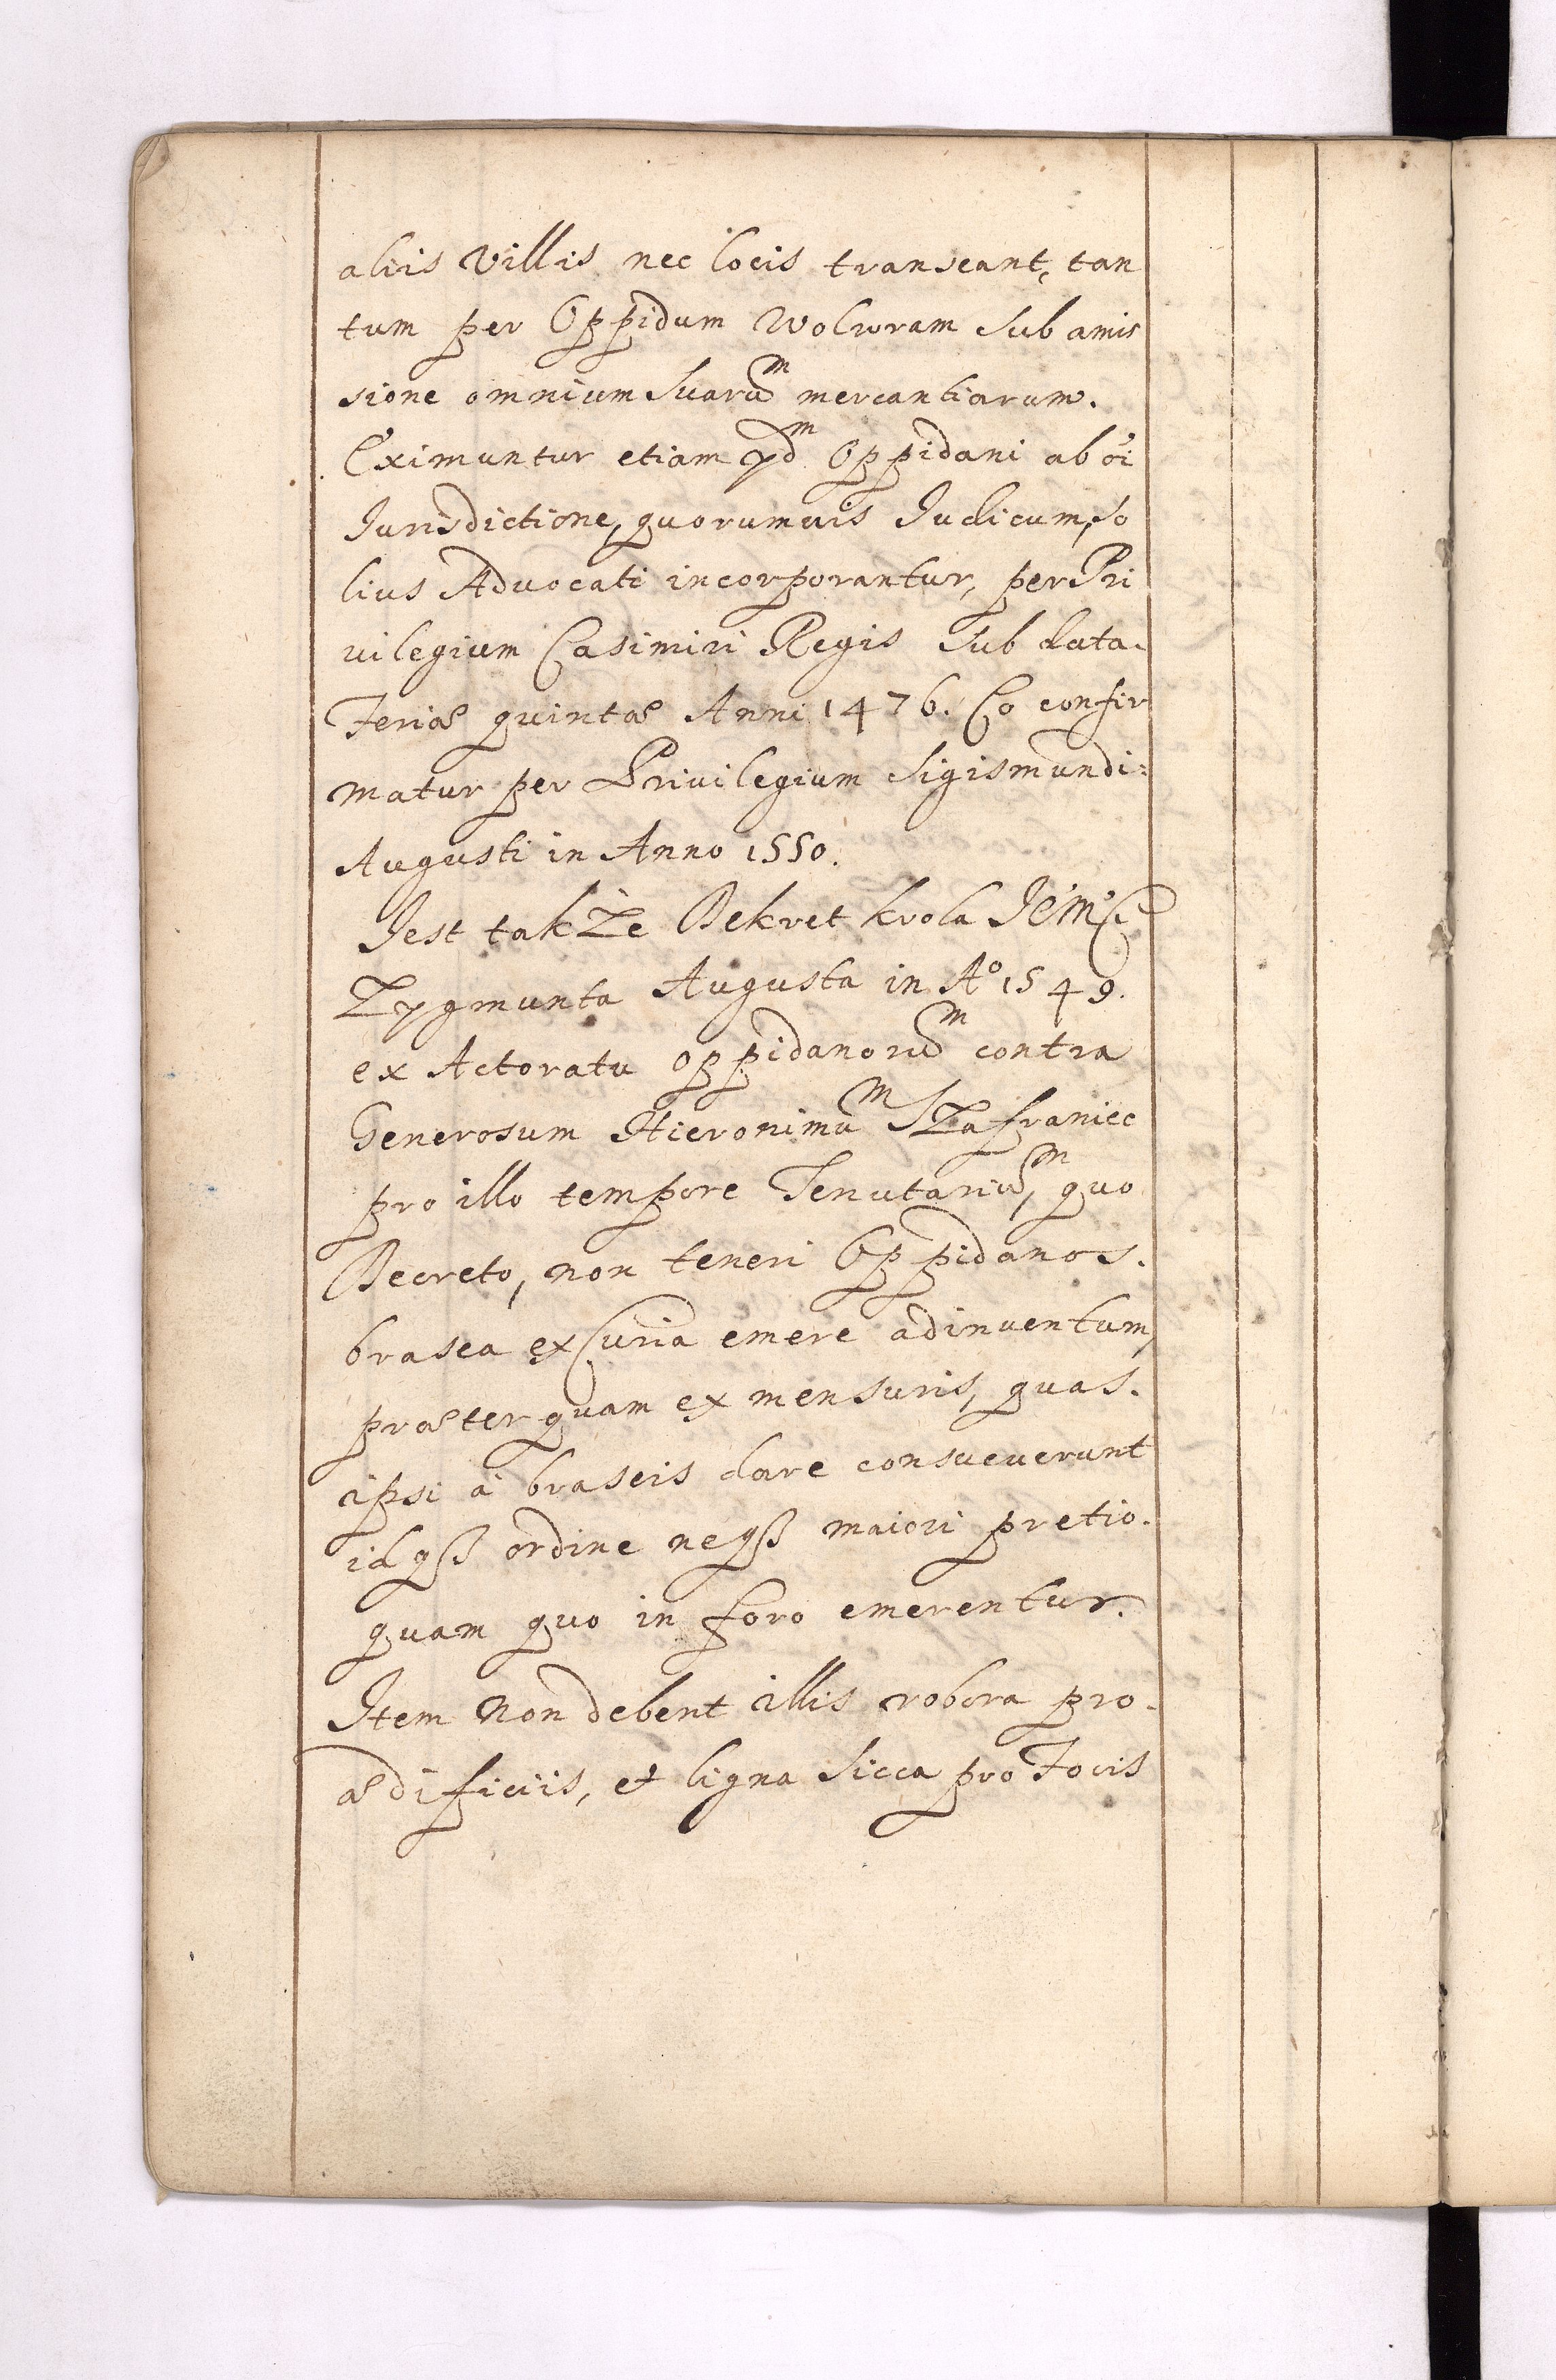 aliis Villis nec locis transeant, tan
tum per Oppidum Wolwram Sub amis
sione omnium Suarū^m mercantiarum.
Eximuntur etiam yd^m Oppidani ab o͠i
Jurisdictione, quorumuis Judicum, so
lius Advocati incorporantur, per Pri
uilegium Casimiri Regis Sub data.
Feriæ quintæ Anni 1476. Co confir
matur per Priuilegium Sigismundi:
Augusti in Anno 1550.
Jest także Dekret krola JeMCi
Zygmunta Augusta in A° 1549.
ex Actoratu oppidanorū^m contra
Generosum Hieronimū^m Szafraniec
pro illo tempore Tenutariū^m, quo
Decreto, non teneri Oppidanos.
brasea ex Curia emere adinuentum,
præter quam ex mensuris, quas.
ipsi à braseis dare consueuerunt
idqß ordine neqß maiori pretio.
quam quo in foro emerentur.
Item non debent illis robora pro.
ædificiis, et ligna Sicca pro Focis